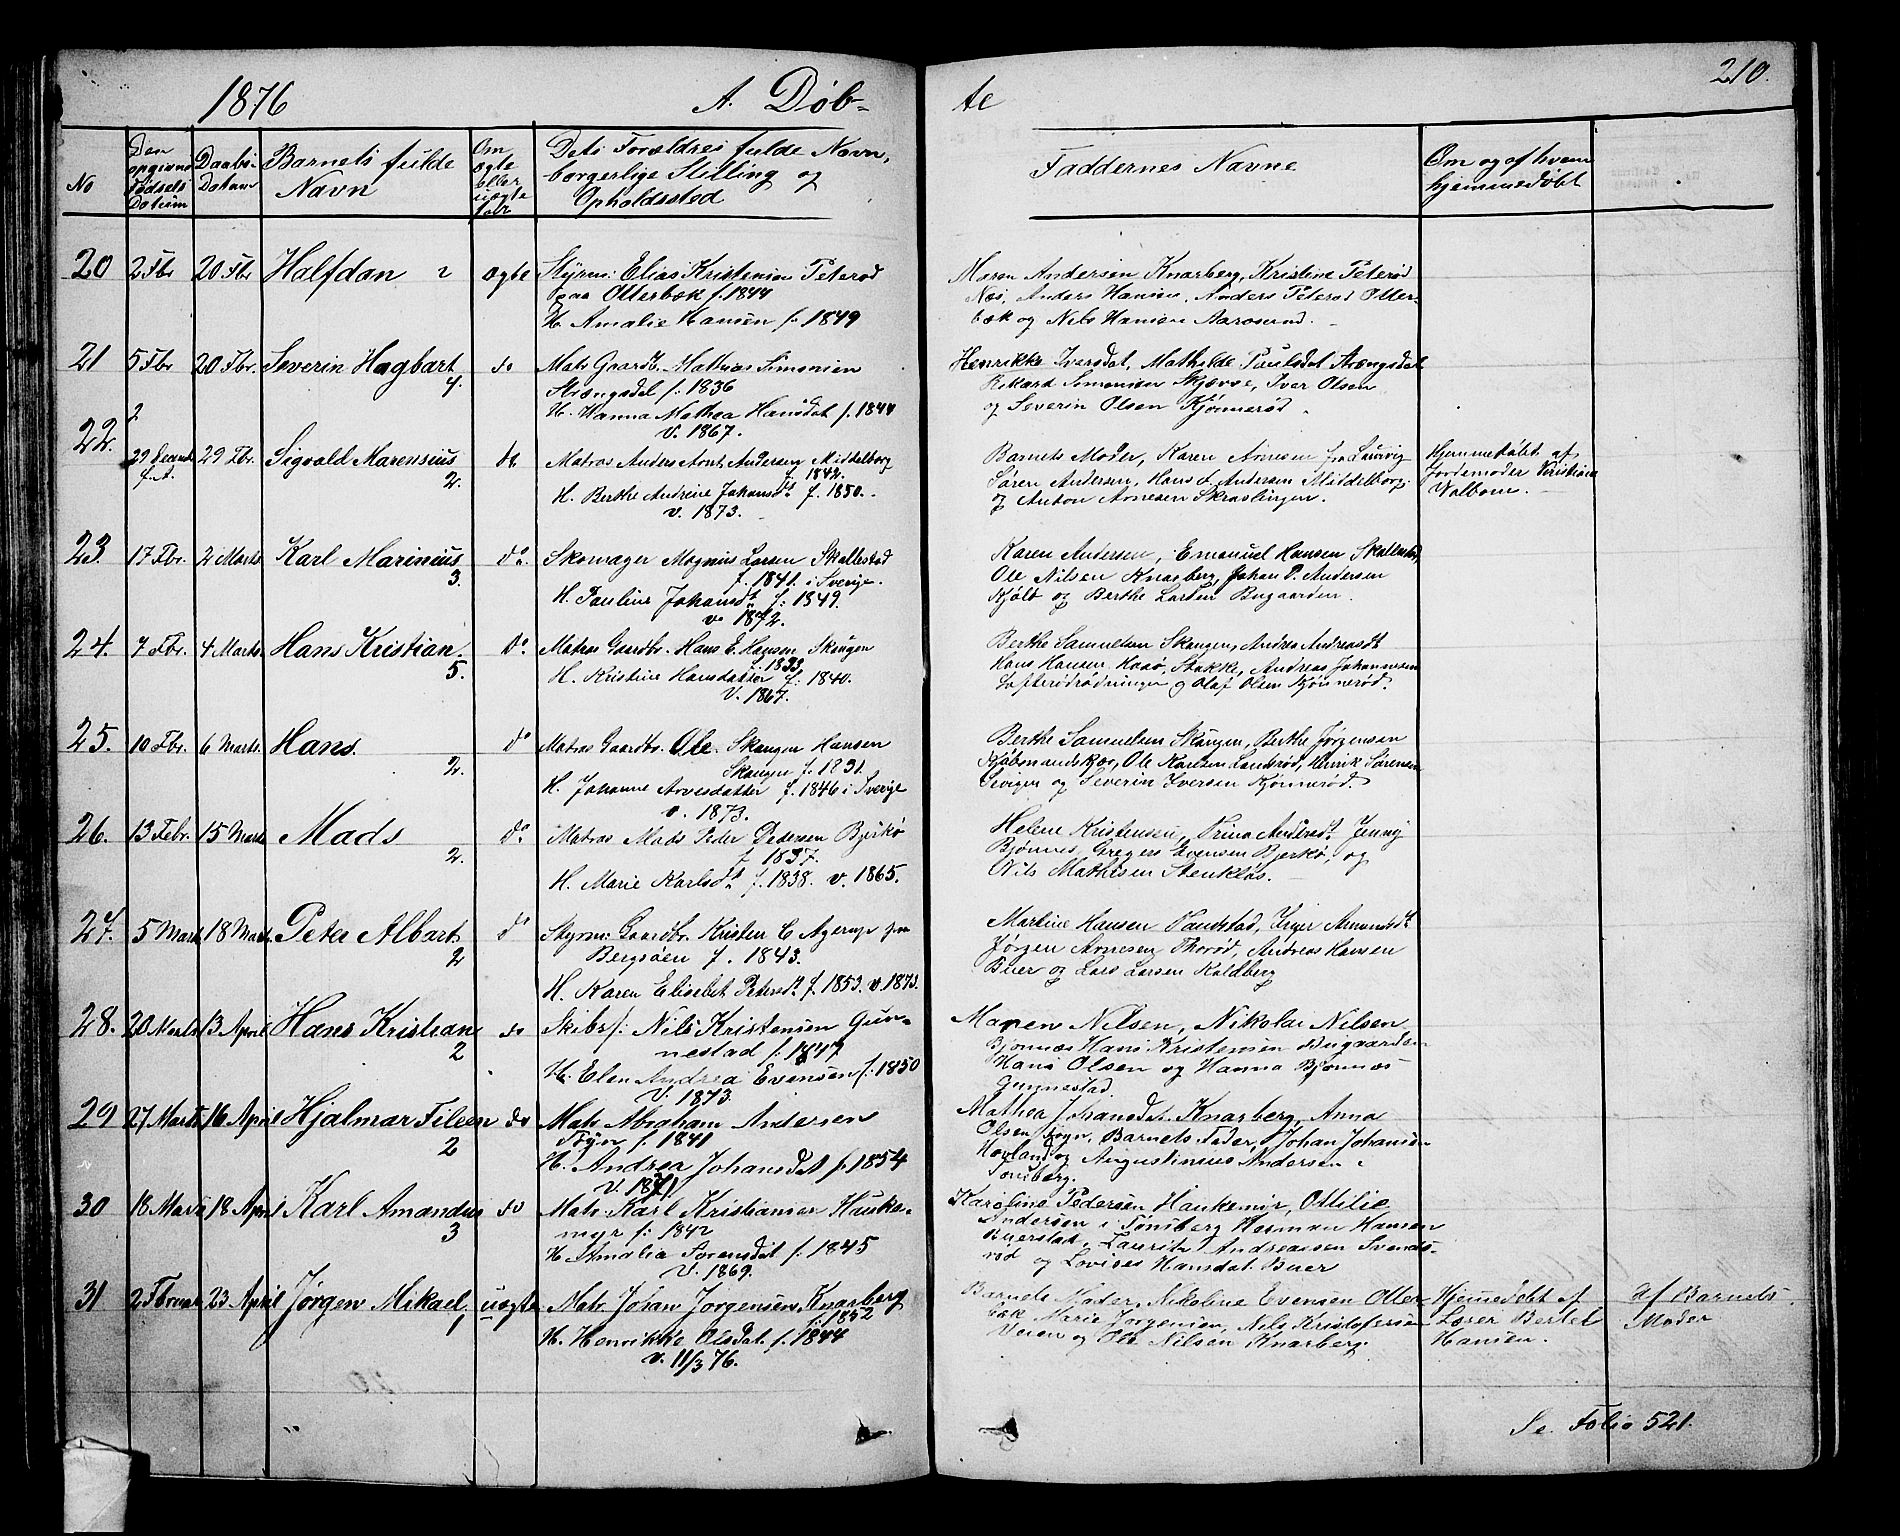 1876 A. Døb-
te 210.
No
Den opgivne Fødsels Datum
Daabs- Datum
Barnets fulde Navn
Om ægte eller uægte født
Dets Forældres fulde Navn, borgerlige Stilling og Opholdssted
Faddernes Navne
Om og af hvem hjemmedøbt
20 2 Fbr 20 Fbr Halfdan 2 ægte Styrm: Elias Kristensen Peterød
paa Otterbæk f. 1844
H. Amalie Hansen f. 1849
Maren Andersen Knarberg, Kristine Peterød
Næs, Anders Hansen, Anders Peterød Otter-
bæk og Nils Hansen Aarøsund.
21 5 Fbr 20 Fbr. Severin Hagbart do Matr Gaardb. Mathias Simonsen
4. Strængsdal f. 1836
H. Hanna Mathea Hansdat f. 1844
v. 1867.
Henrikke Iversdat, Mathilde Paulsdat Strengsdal
Rikard Simonsen Skjærve, Iver Olsen
og Severin Olsen Kjønnerød
22. 29 Fbr. Sigvald Marensius do Matros Anders Arnt Andersen Middelborg
2. f. 1842.
H. Berthe Andrine Johansdt f. 1850.
v. 1873.
Barnets Moder, Karen Arnesen fra Laurvig
Søren Andersen, Hans A Andersen Middelborg,
og Anton Arnesen
Hjemmedøbt af
Jordemoder Kristiane
Valbom.
23. 17 Fbr. 2 Marts Karl Marinius do. Skomager Magnus Larsen Skallestad
3. f. 1841. i Sverige.
H. Pauline Johansdt f. 1849.
v. 1872.
Karen Andersen, Emanuel Hansen Skallestad,
Ole Nilsen Knarberg, Johan P. Andersen
Kjøle og Berthe Larsen Bugaarden.
24. 7 Fbr. 4 Marts. Hans Kristian. do. Matros Gaardbr. Hans E. Hansen Skaugen
5. f. 1833
H. Kristine Hansdatter f. 1840.
v. 1867.
Berthe Samuelsen Skaugen, Andrea Andreasdt
Hans Hansen Stokke, Andreas Johannesen
og Olaf Olsen Kjønnerød.
25. 10 Fbr. 6 Marts. Hans. do Matros Gaardbr. Ole Skaugen Hansen
2. Skaugen f. 1831.
H. Johanne Arvesdatter f. 1846 i Sverige
v. 1873.
Berthe Samuelsen Skaugen, Berthe Jørgensen
Kjøbmandskjær, Ole Karlsen Landrød, Henrik Sørensen
og Severin Iversen Kjønnerød.
26. 13 Febr. 15 Marts Mads do. Matros Mads Peder Pedersen Bjerkø
2. f. 1837.
H. Marie Karlsdt f. 1838. v. 1865.
Helene Kristensen, Trina Andersdt Jenny
Bjønnes, Gregers Evensen Bjerkø, og
Nils Mathisen Stenkløs.
27. 5 Marts 18 Marts. Peter Albart do Styrm: Gaardbr. Kristen C Agerup paa
2 Bergsøen f. 1843.
H. Karen Elisebet Petersdt f. 1853. v. 1873.
Martine Hansen Vandstad, Inger Amundsdt
Jørgen Arnesen Thorød, Andreas Hansen
Buer og Lars Larsen Kaldberg
28. 20 Marts 13 April Hans Kristian do Skibsf: Nils Kristensen Gun-
2 nestad f. 1847
H. Elen Andrea Evensen f. 1850
V. 1873.
Maren Nilsen, Nikolai Nilsen
Bjønnæs Hans Kristensen Bugaarden
Hans Olsen og Hanna Bjønnæs
Gunnestad.
29 27 Marts 16 April Hjalmar Fileen do Matr Abraham Andersen
2 Føyn f. 1841
H. Andrea Johansdat f. 1854
V. 1871.
Mathea Knarberg, Anna
Olsen Føyn, Barnets Fader, Johan Johansen
Hovland og Augustinius Andersen
Tønsberg.
30 18 Marts 18 April Karl Amandus do Matr. Karl Kristiansen Hauke-
3 myr f. 1842
H. Amalia Sørensdat f. 1845
V. 1869.
Karoline Pedersen Haukemyr, Ottilie
Andersen i Tønsberg Herman Hansen
Buerstad, Lauritz Andreassen Svends-
rød og Lovise Hansdat. Buer
31 2 Februar 23 April Jørgen Mikael, uægte Matr. Johan Jørgensen, Knarberg
1 f. 1852
H. Henrikke Olsdat. f. 1844
v. 11/3 76.
Barnets Moder, Nikoline Evensen Otter-
bæk Marie Jørgensen, Nils Kristofersen
Veien og Ole Nilsen Knarberg.
Hjemmedøbt af
Lærer Bertel
Hansen.
af Barnets
Moder
Se Folio 521.